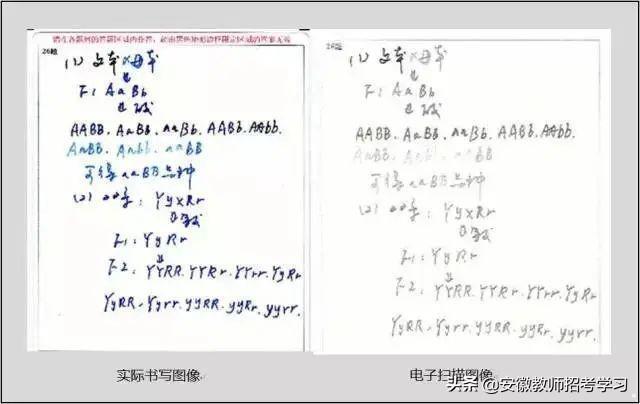 请在各题目的答题区域内作答，超出黑色矩形边框限定区域的答案无效
26题
(1) 父本×母本
↓
F1 AaBb
↓
AABB. AaBB. aaBb. AABb. AAbb.
AaBB. Aabb. aaBB
可得aaBB品种
(2) YyRr
F1: YyRr
↓
F2: YYRR. YYRr. YYrr. YyRr
YyRR. Yyrr. yyRR. yyRr. yyrr.
实际书写图像
26题
(1) 父本×母本
↓
F1 AaBb
↓
AABB. AaBB. aaBb. AABb. AAbb.
AaBB. Aabb. aaBB
可得aaBB品种
(2)
F1: YyRr
↓
F2: YYRR. YYRr. YYrr. YyRr
YyRR. Yyrr. yyRR. yyRr. yyrr.
电子扫描图像
头条@安徽教师招考学习